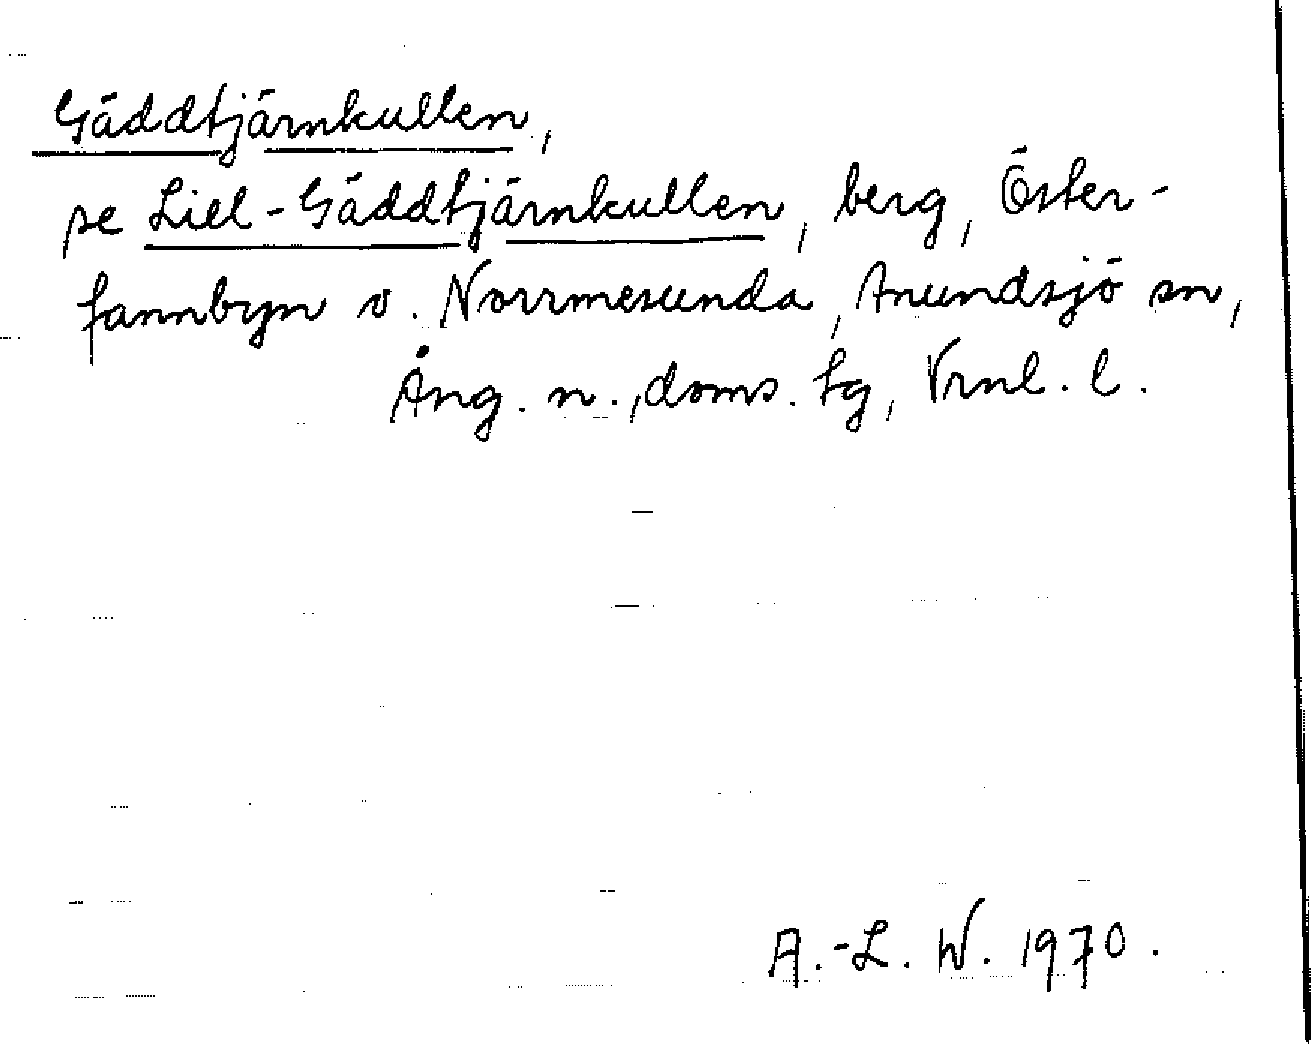 Gäddtjärnkullen,
se Lill-Gäddtjärnkullen, berg, Öster-
fannbyn o. Norrmesunda, Anundsjö sn,
Ång. n., doms. tg, Vrnl. l.
A.-L. W. 1970.